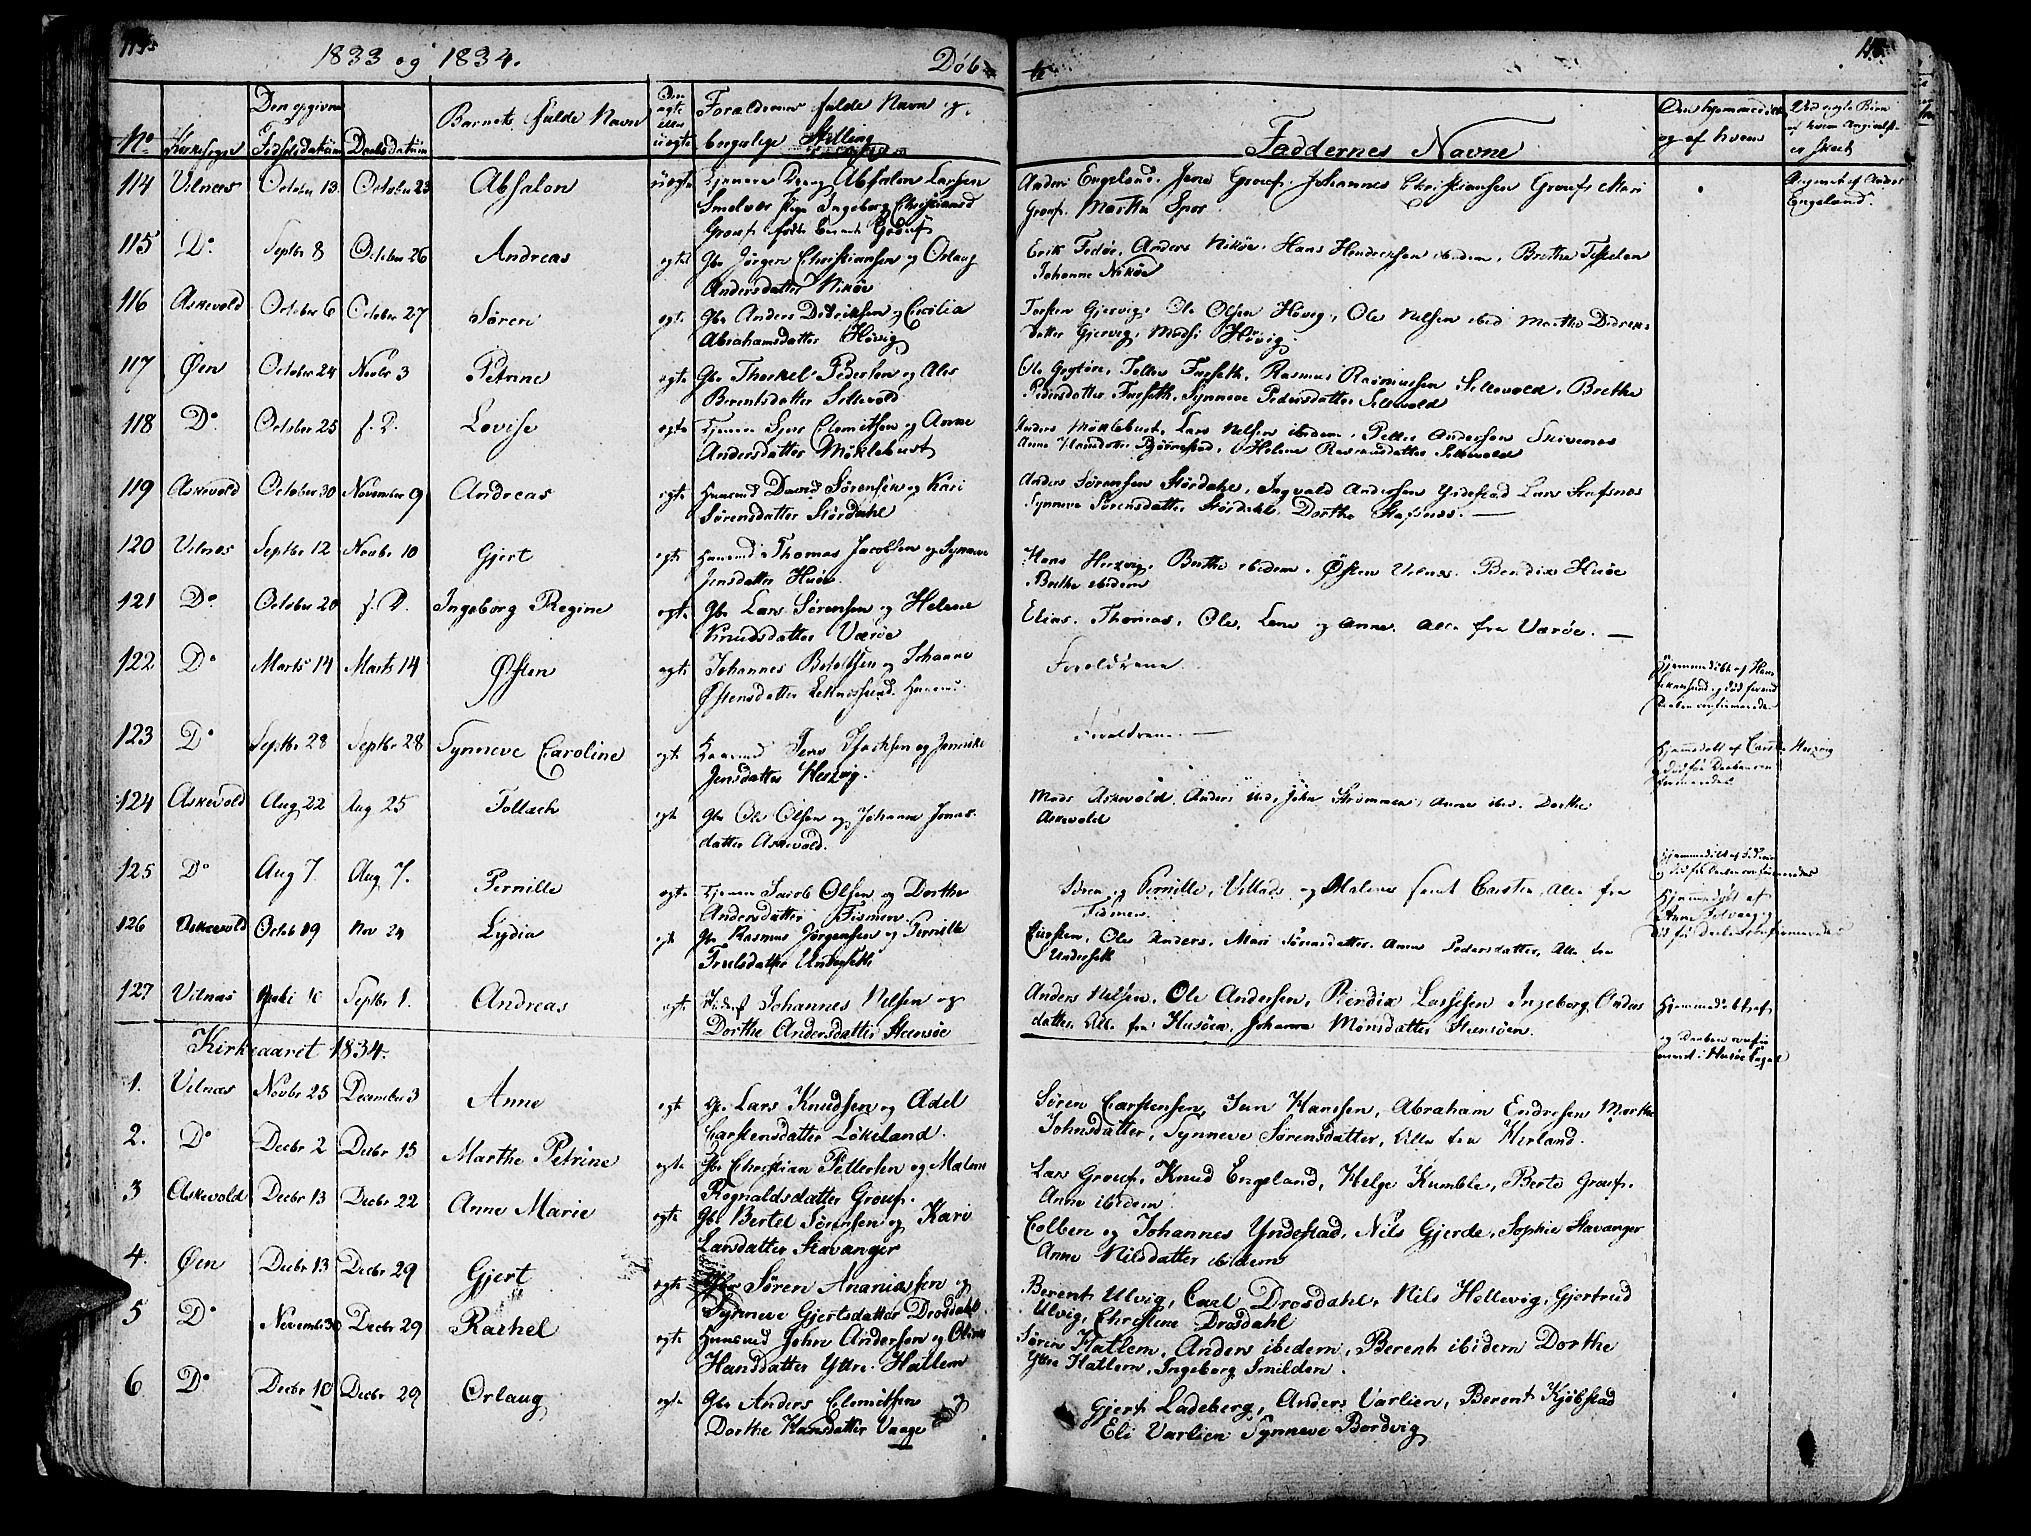 1833 og 1834.
Døb-
te
No
Kirkesogn
Den opgivne
Fødselsdatum
Daabsdatum
Barnets fulde Navn
ægte
eller
uægte
Forældrenes fulde Navn og
borgerlige Stilling
Faddernes Navne
Om hjemmedøbt
og af hvem
Ved uægte Børn
af hvem Angivelsen
er skeet
114 Vilnæs October 13 October 23 Absalon uægte Absalon Larssen
Smelvær Pige Ingeborg Christiansd
Grouf
Anders Engeland. Jens Grouf. Johannes Christiansen Grouf Mari
Grouf. Martha
Angivet af Anders
Engeland.
115 Do Septbr 8 October 26 Andreas egte Gbr Jørgen Christiansen og Orlaug
Andersdatter Nikøe
Erik Fedøe, Anders Nikøe, Hans Hendrichsen ibidem, Brethe
Johanne Nikøe
116 Askevold October 6 October 27 Søren egte Gbr Anders Didriksen og Cicilia
Abrahamsdatter Høvig
Torsten Gjervig, Ole Olsen Høvig, Ole Nelsen ibid Marthe Didriks
datter Gjervig, Høvig.
117 Øen October 24 Novbr 3 Petrine egte Gbr Thorkel Pedersen og Ales
Berentsdatter Sellevold
Ole Tollev Furseth, Rasmus Rasmussen Sellevold, Brethe
Pedersdatter Furseth, Synneve Pedersdatter Sellevold
118 Do October 25 f. D. Lovise egte Clemitsen og Anne
Andersdatter Møklebust
Anders Møklebust, Lars Nelsen ibidem, Petter Andersen Skivenes
Anne Hansdatter Bjørnstad, Helene Rasmusdatter Sellevold
119 Askevold October 30 November 9 Andreas egte Huusmd David Sørensen og Kari
Sørensdatter Stordahl
Anders Sørensen Stordahl, Ingvald Andersen Yndestad Lars Stafsnes
Synneve Sørensdatter Stordahl. Dorthe Stafsnes.
120 Vilnæs Septbr 12 Novbr 10 Gjert egte Huusmd Thomas Jacobsen og Synneve
Jensdatter Husøe.
Hans Herzvig, Berthe ibidem. Østen Vilnæs. Bendix Husøe
Brethe ibidem
121 Do. October 20 f. D. Ingeborg Regine egte Gbr Lars Sørensen og Helene
Knudsdatter Værøe
Elias. Thomas, Ole, Lene og Anne. Alle fra Værøe.
122 Do Marts 14 Marts 14 Østen egte Johannes og Johanne
Østensdatter
Forældrene
Hjemmedøbt af
og død førend
Daaben confirmeredes
123 Do Septbr 28 Septbr 28 Synneve Caroline egte Huusmd Jens og
Jensdatter Herzvig.
Forældrene
Hjemmedøbt af Herzvig
og død før Daaben con
firmeredes
124 Askevold Aug 22 Aug 25 Tollach egt Gbr Ole Olsen og Johanne Jonas-
datter Askevold.
Mads Askevold. Anders ibid, John Strømmen, Anne ibid. Dorthe
Askevold
125 Do Aug 7. Aug 7. Pernille egte Jacob Olsen og Dorthe
Andersdatter Tismen.
Søren og Pernille, Villads og Malene samt Carsten, alle fra
Tismen.
Hjemmedøbt af
og død før Daaben confirmeredes
126 Askevold Octob 19 Nov 24 Lydia egt Gbr Rasmus Jørgensen og Pernille
Truelsdatter Underseth
Ole Anders, Mari Sørensdatter. Anne Pedersdatter, Alle fra
Underseth
Hjemmedøbt af
Anne
127 Vilnæs Septbr 1. Andreas egte Johannes Nelsen og
Dorthe Andersdatter Steensøe
Anders Nelsen, Ole Andersen, Rerdix Lassesen Ingeborg Anders
datter. Alle fra Husøen, Johanna Monsdatter Steensøen.
Hjemmedøbt af
og Daaben confir
meret i Husøe Capel
Kirkeaaret 1834.
1. Vilnæs Novbr 25 December 3 Anne egt Gb. Lars Knudsen og Adel
Carstensdatter Løkeland.
Søren Carstensen, Jan Hansen, Abraham Endresen Marthe
Johnsdatter, Synneve Sørensdatter, Alle fra Herland.
2. Do Decbr 2 Decbr 15 Marthe Petrine egte Gbr Christian Pettersen og Malene
Rognaldsdatter Grouf.
Lars Grouf. Knud Engeland, Helge Kumble, Berte Grouf.
Anne ibidem
3 Askevold Decbr 13 Decbr 22 Anne Marie egte Gbr Bertel Sørensen og Kari
Larsdatter Stavanger
Colben og Johannes Yndestad, Nils Gjerde, Sophie Stavanger
Anne Nilsdatter ibidem
4. Øen Decbr 13 Decbr 29 Gjert egte Gbr Søren Ananiassen og
Synneve Gjertsdatter Drosdahl.
Berent Ulvig, Carl Drosdahl, Nils Hellevig, Gjertrud
Ulvig, Christene Drosdahl
5 Do November 30 Decbr 29 Rachel egte Huusmd John Andersen og
Hansdatter Yttre Hatlem
Søren Hatlem, Anders ibidem, Berent ibidem Dorthe
Yttre Hatlem, Ingeborg Smilden.
6 Do Decbr 10 Decbr 29 Orlaug egte Gbr Anders Clemitsen og
Dorthe Hansdatter Vaage
Gjert Ladeberg, Anders Varlien, Berent Kjøbstad
Eli Varlien Synneve Bordvig